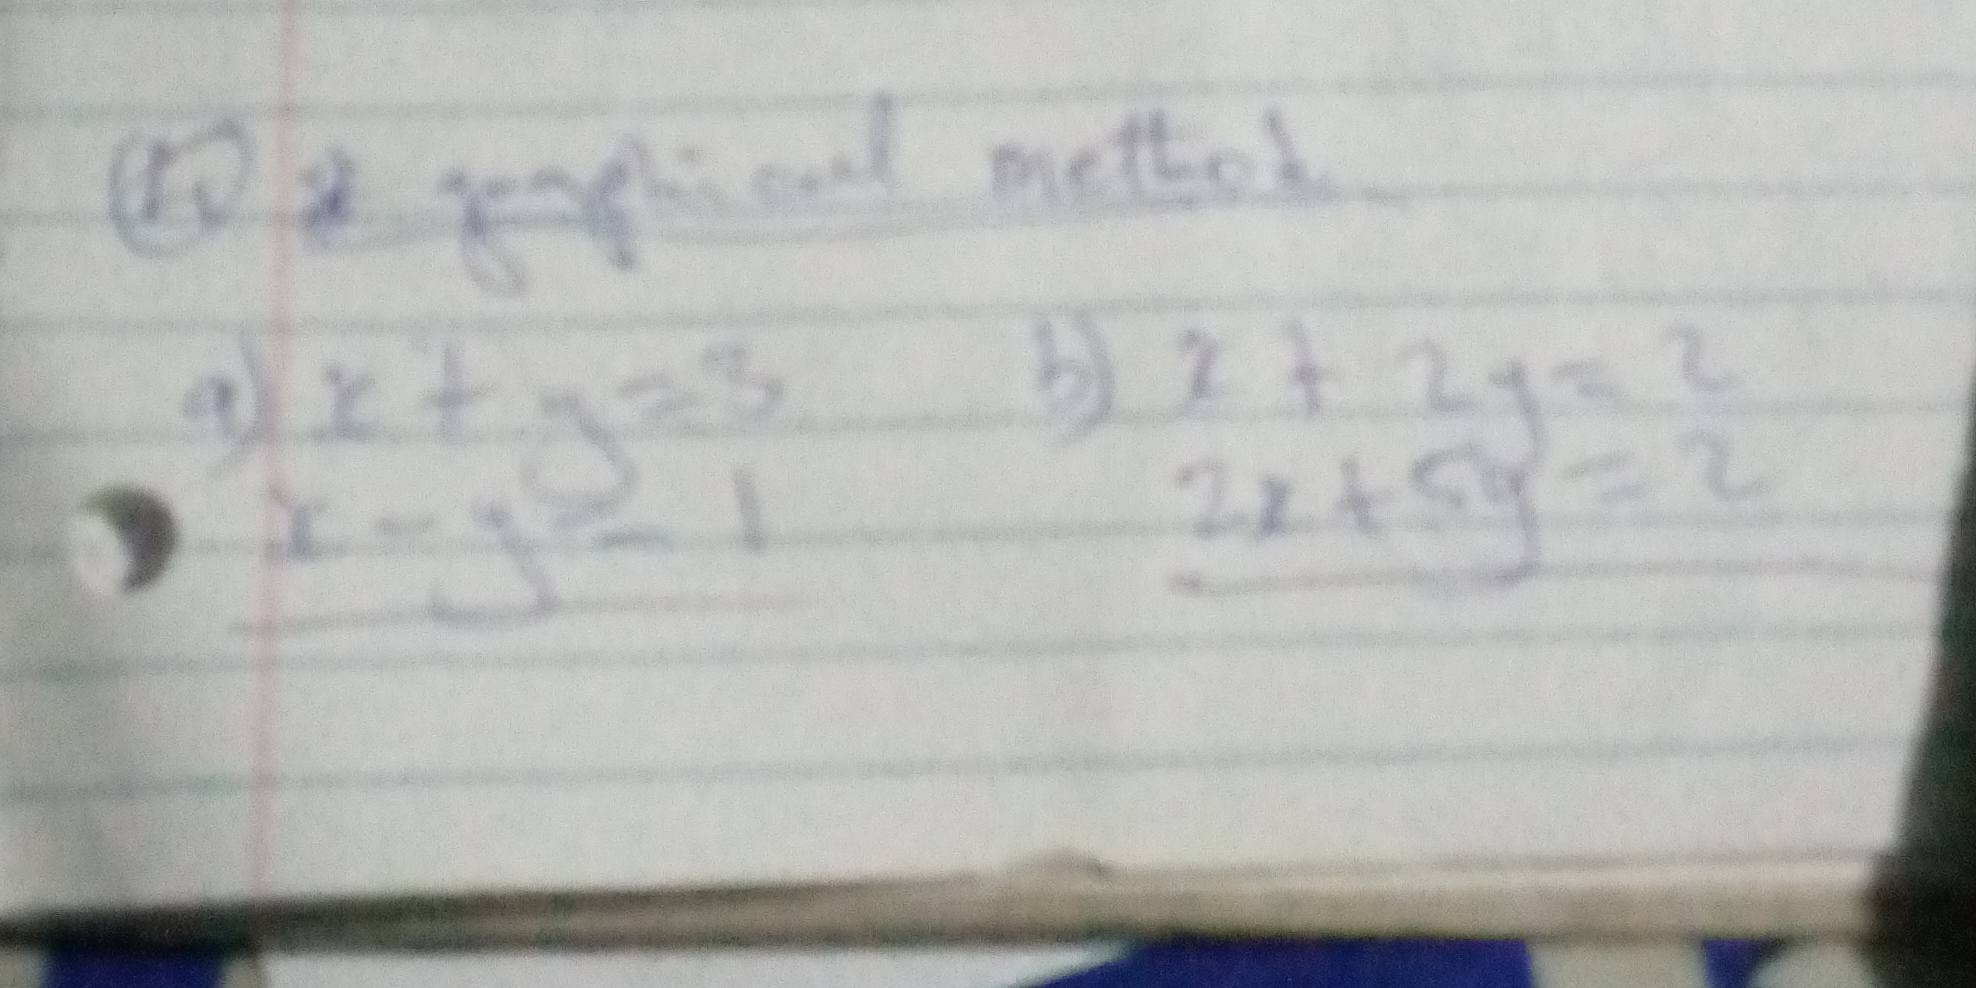 graphical method
a) x + y = 3 b) x + 2y = 2
x - y = - 1 2x + 5y = 2